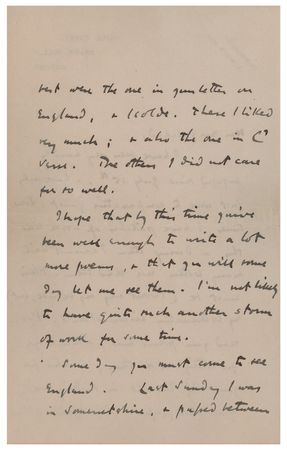 best were the one in your letter on
England, & Isolde. These I liked
very much; & also the one in C
verse. The others I did not care
for so well.
I hope that by this time you've
been well enough to write a lot
more poems, & that you will some
day let me see them. I'm not likely
to have quite such another storm
of work for some time.
Some day you must come to see
England. Last Sunday I was
in Somersetshire, & passed between